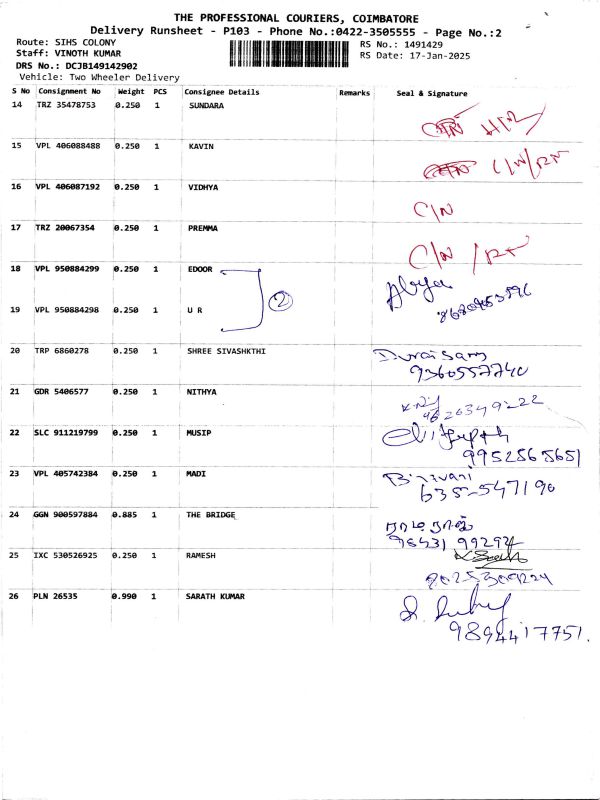 THE PROFESSIONAL COURIERS, COIMBATORE
Delivery Runsheet - P103 - Phone No.:0422-3505555 - Page No.:2
Route: SIHS COLONY
Staff: VINOTH KUMAR
DRS No.: DCJB149142902
Vehicle: Two Wheeler Delivery
RS No.: 1491429
RS Date: 17-Jan-2025
S No Consignment No Weight PCS Consignee Details Remarks Seal & Signature
14 TRZ 35478753 0.250 1 SUNDARA
15 VPL 406088488 0.250 1 KAVIN
16 VPL 406087192 0.250 1 VIDHYA C/N
17 TRZ 20067354 0.250 1 PREMMA C/N
18 VPL 950884299 0.250 1 EDOOR
2
19 VPL 950884298 0.250 1 U R
20 TRP 6860278 0.250 1 SHREE SIVASHKTHI
9360557740
21 GDR 5406577 0.250 1 NITHYA
22 SLC 911219799 0.250 1 MUSIP
9952565651
23 VPL 405742384 0.250 1 MADI
635-547190
24 GGN 900597884 0.885 1 THE BRIDGE
25 IXC 530526925 0.250 1 RAMESH
26 PLN 26535 0.990 1 SARATH KUMAR
9894417751.